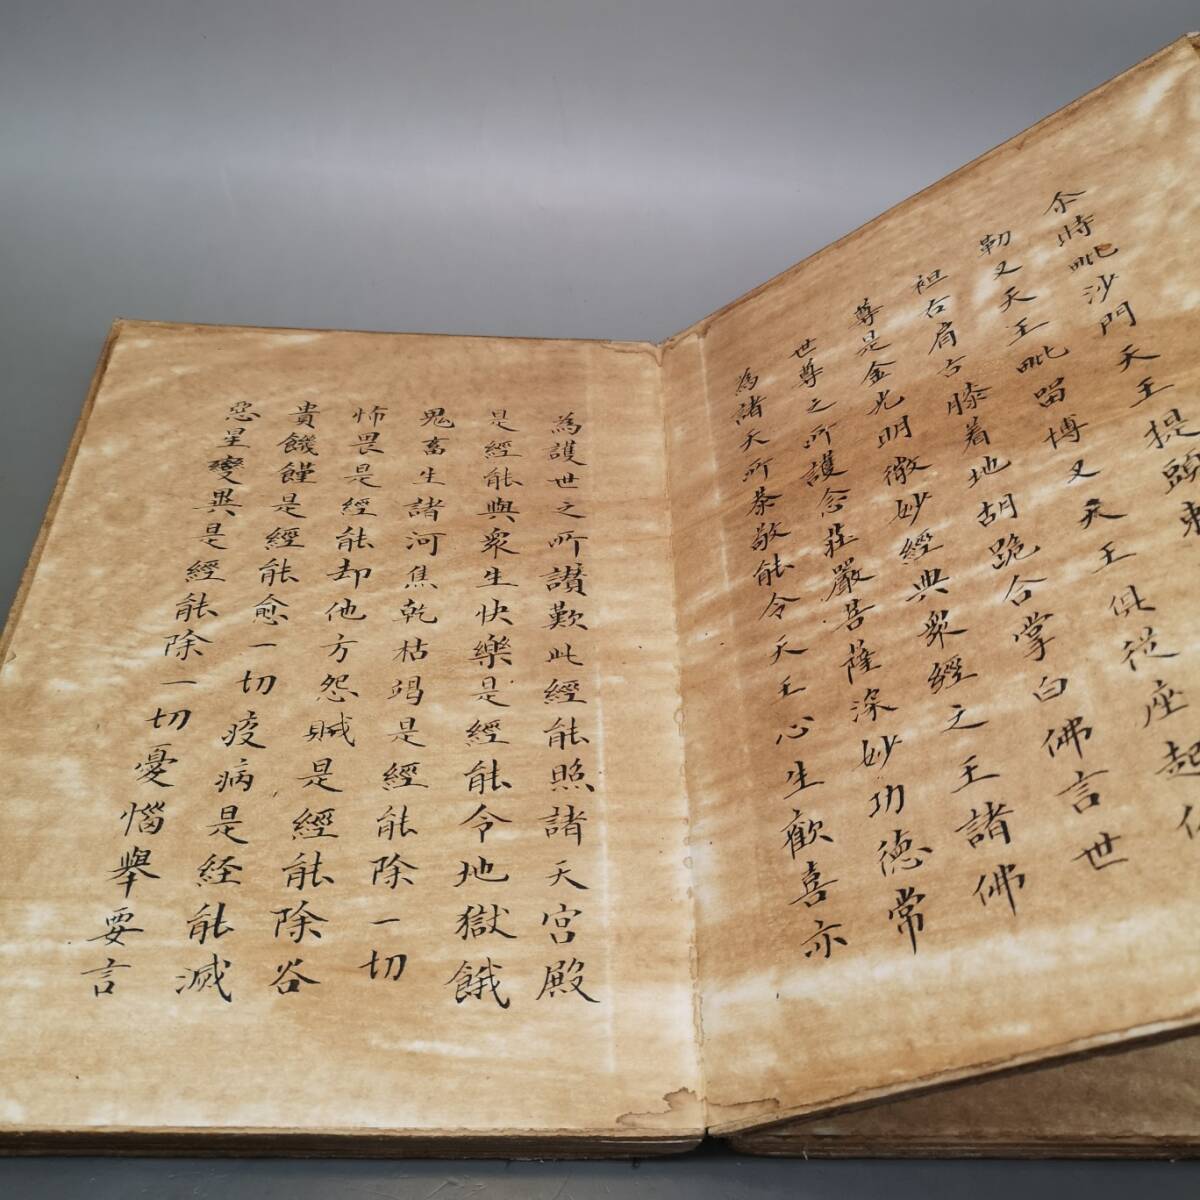 尒時毗沙門天王提頭
勒叉天王毗留博叉天王俱從座起
袒右肩右膝着地胡跪合掌白佛言世
尊是金光明微妙經典衆經之王諸佛
世尊之所護念莊嚴菩薩深妙功德常
為諸天所恭敬能令天王心生歡喜亦
為護世之所讃歎此經能照諸天宮殿
是經能與衆生快樂是經能令地獄餓
鬼畜生諸河焦乾枯竭是經能除一切
怖畏是經能却他方怨賊是經能除谷
貴饑饉是經能愈一切疫病是経能滅
惡星變異是經能除一切憂惱舉要言